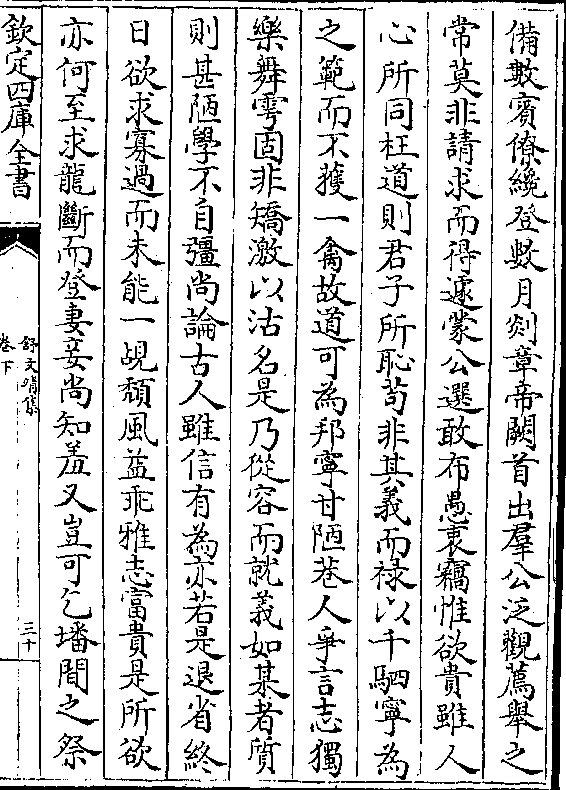 備數賓僚纔登數月剡章帝闕首出羣公泛觀薦舉之
常莫非請求而得遽蒙公選敢布愚衷竊惟欲貴雖人
心所同枉道則君子所恥苟非其義而祿以千駟寧為
之範而不獲一禽故道可為邦寧甘陋巷人爭言志獨
樂舞雩固非矯激以沽名是乃從容而就義如某者質
則甚陋學不自彊尚論古人雖信有為亦若是退省終
日欲求寡過而未能一覘頽風益乖雅志富貴是所欲
亦何至求龍斷而登妻妾尚知羞又豈可乞墦間之祭
欽定四庫全書
舒文靖集
卷下
三十